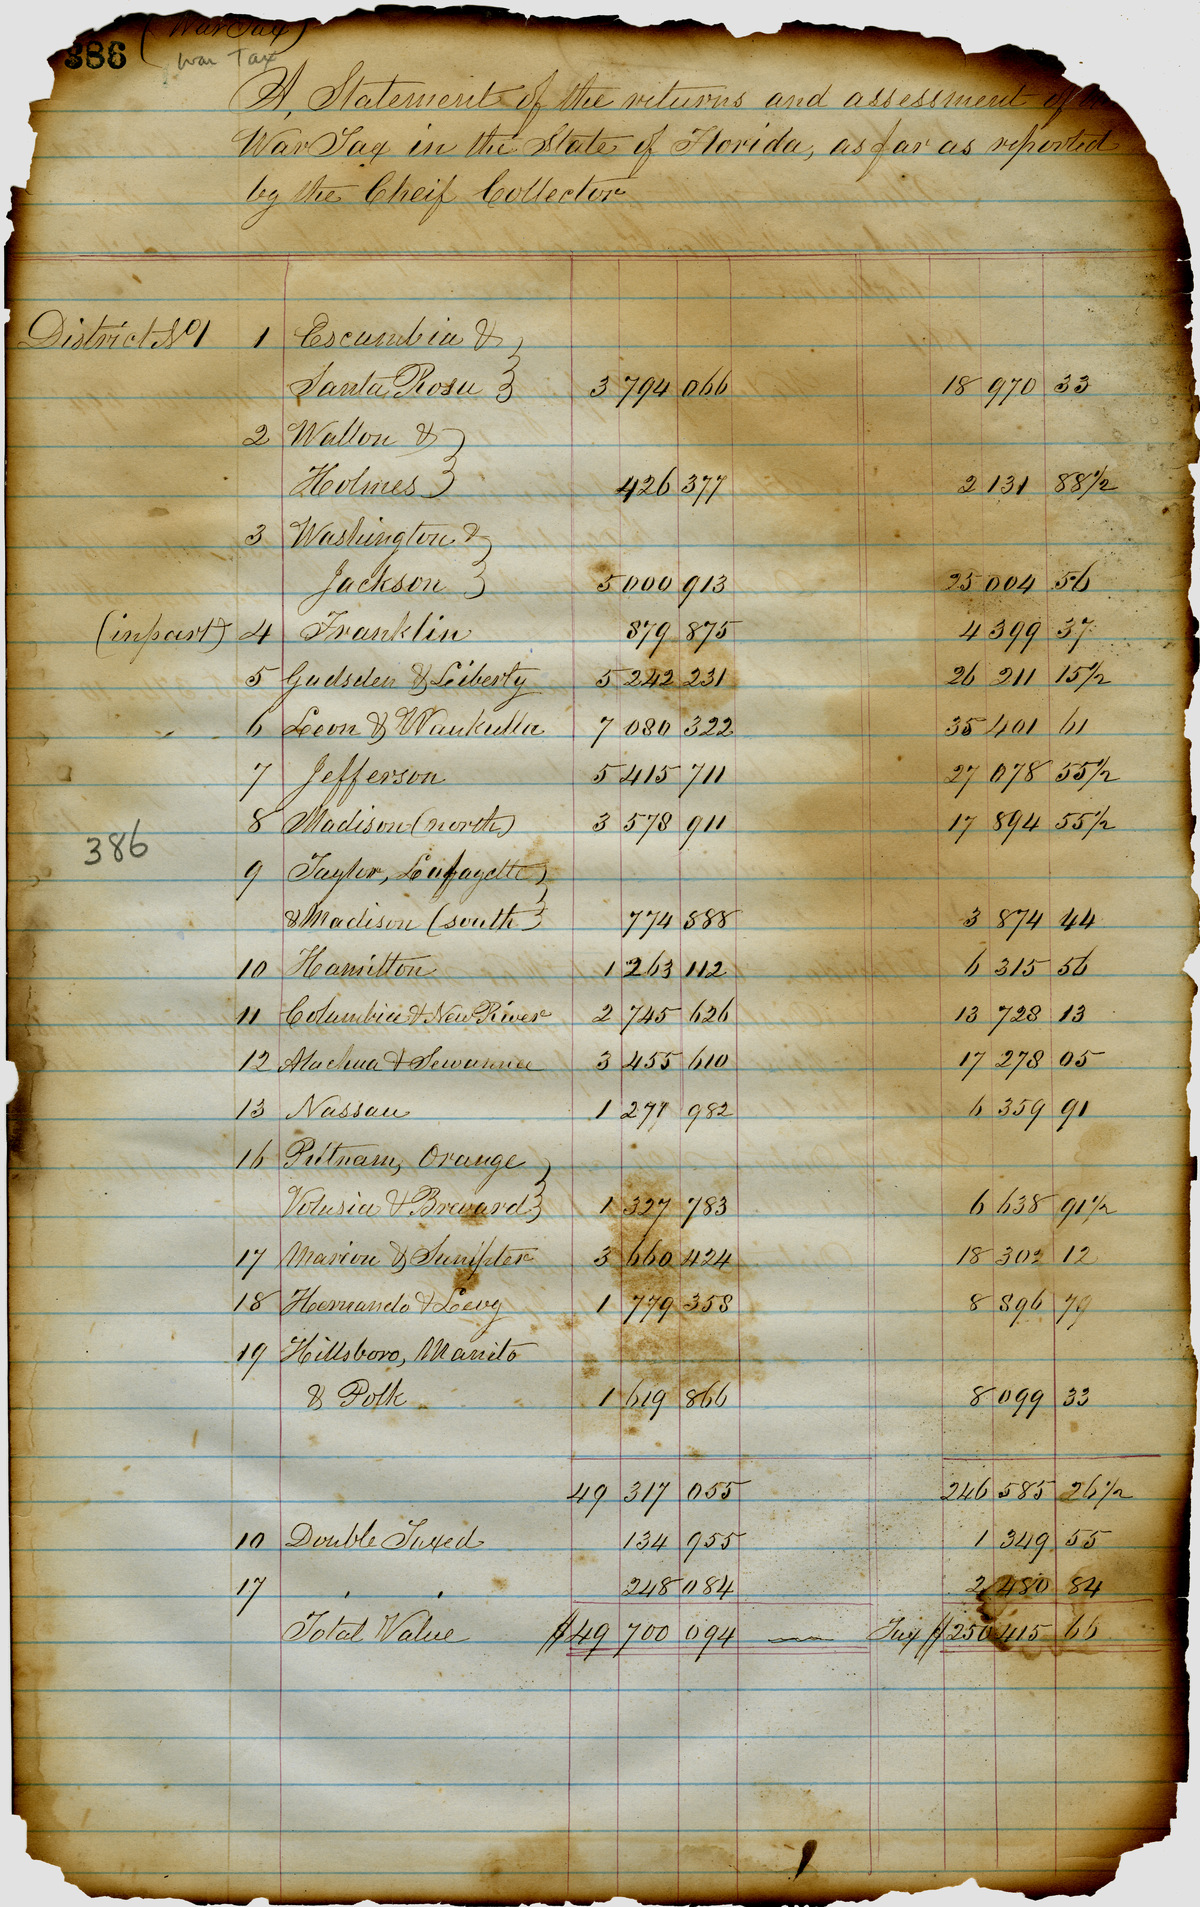 386 (War Tax)
War Tax
A Statement of the returns and assessment of
War Tax in the State of Florida, as far as reported
by the Cheif Collector
District No 1 1 Escambia &
Santa Rosa 3 794 066 18 970 33
2 Walton &
Holmes 426 377 2 131 88 1/2
3 Washington &
Jackson 5 000 913 25 004 56
(in part) 4 Franklin 879 875 4 399 37
5 Gadsden & Liberty 5 242 231 26 211 15 1/2
6 Leon & Waukulla 7 080 322 35 401 61
7 Jefferson 5 415 711 27 078 55 1/2
8 Madison (north) 3 578 911 17 894 55 1/2
386
9 Taylor, Lafayette
& Madison (south 774 888 3 874 44
10 Hamilton 1 263 112 6 315 56
11 Columbia & New River 2 745 626 13 728 13
12 Alachua & Sewannee 3 455 610 17 278 05
13 Nassau 1 271 982 6 359 91
16 Putnam, Orange
Volusia & Brevard 1 327 783 6 638 91 1/2
17 Marion & Sumpter 3 660 424 18 302 12
18 Hernando & Levy 1 779 358 8 896 79
19 Hillsboro, Manito
& Polk 1 619 866 8 099 33
49 317 055 246 585 26 1/2
10 Double Taxed 134 955 1 349 55
17 " " 248 084 2 480 84
Total Value $49 700 094 — Tax $250 415 66